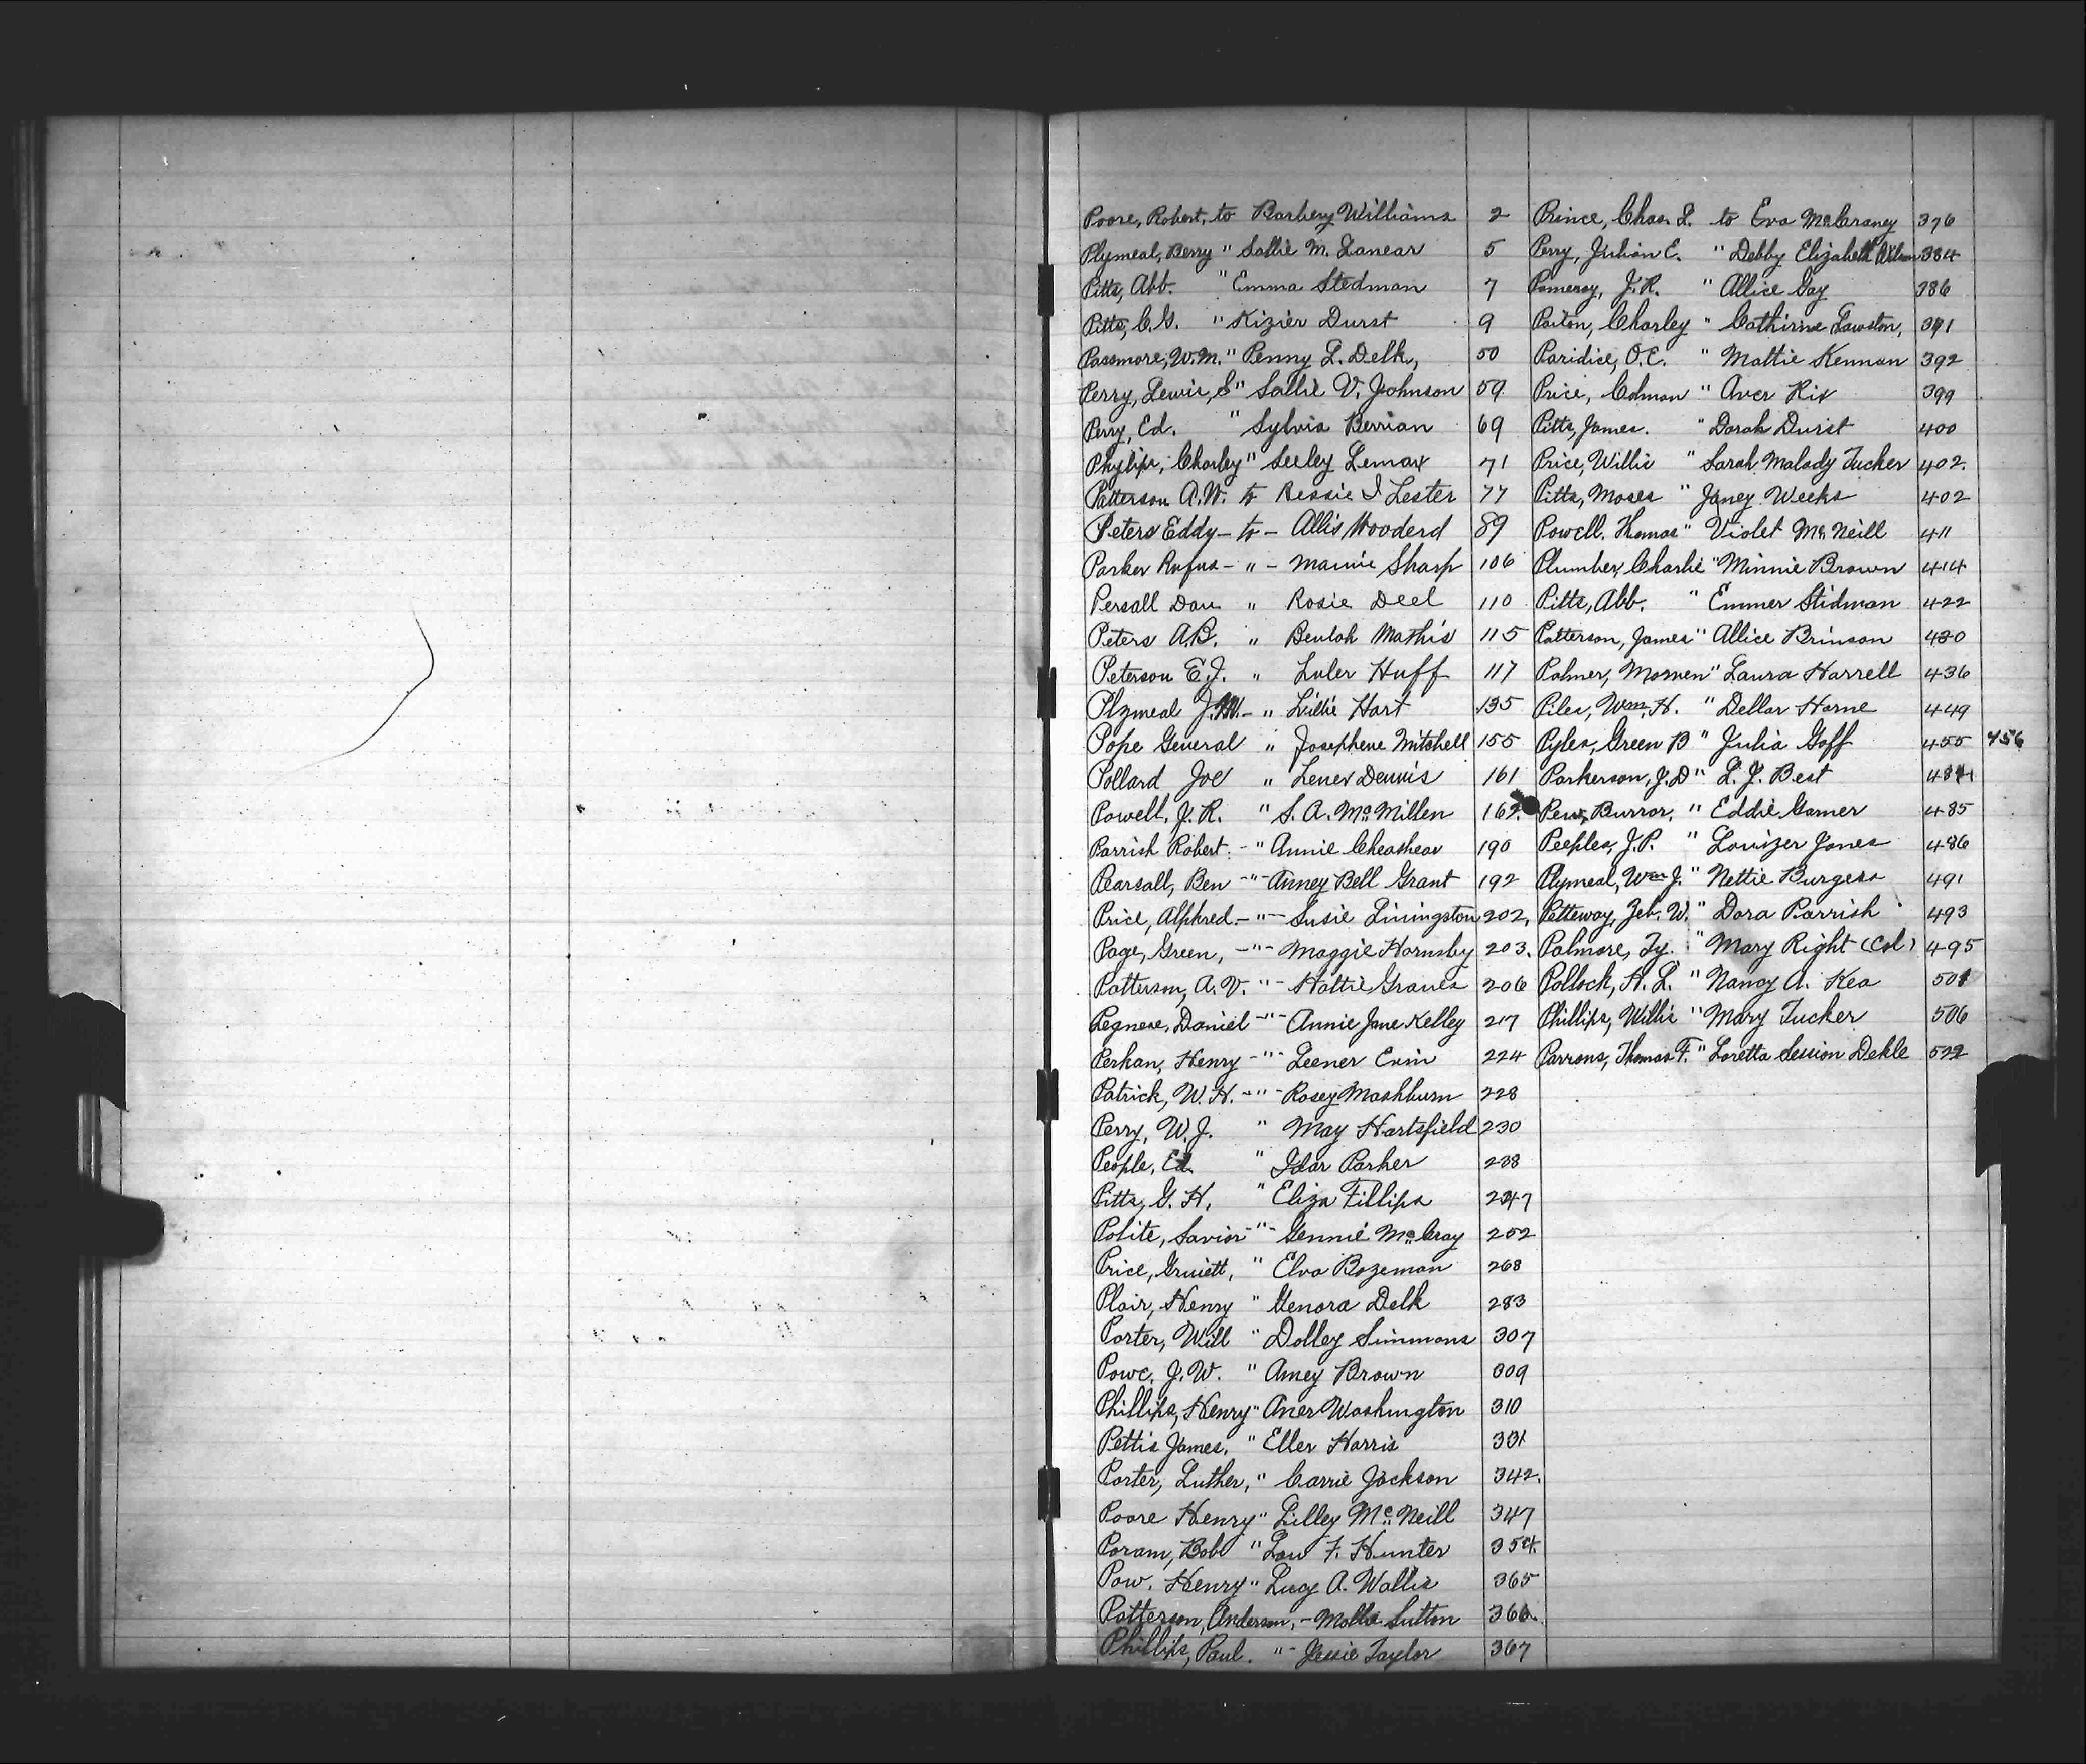 Poore, Robert, to Barbery Williams 2
Plymeal, Berry " Sallie M. Lanear 5
Pitts, Abb. " Emma Stedman 7
Pitts, C.G. " Kizier Durst 9
Passmore, W.M. " Penny L. Delk, 50
Perry, Lewis, S " Sallie V. Johnson 59
Perry, Ed. " Sylvia Berrian 69
Phylips, Charley " Seeley Lemax 71
Patterson A.W. to Bessie I Lester 77
Peters Eddy - to - Allis Wooderd 89
Parker Rufus - " - Mamie Sharp 106
Persall Dau " Rosie Deel 110
Peters A.B. " Beulah Mathis 115
Peterson E.J. " Luler Huff 117
Plymeal J.W. - " Lillie Hart 135
Pope General " Josephene Mitchell 155
Pollard Joe " Lener Dennis 161
Powell, J.R. " S.A. McMillen 162.
Parrish Robert. - " Annie Cheashear 190
Pearsall, Ben - " - Anney Bell Grant 192
Price, Alphred. - " - Susie Livingston 202,
Page, Green, - " - Maggie Hornsby 203.
Patterson, A.V. " - Hattie Graves 206
Legnese, Daniel - " - Annie Jane Kelley 217
Perhan, Henry - " - Leener Erin 224
Patrick, W.H. - " - Rosey Mashburn 228
Perry, W.J. " May Hartsfield 230
People, Ed. " Idar Parker 238
Pitts, G.H. " Eliza Fillips 247
Polite, Savior - " - Gennie McCray 252
Price, Gruiett, " Elva Bozeman 268
Plair, Henry " Genora Delk 283
Porter, Will " Dolley Simmons 307
Powe, J.W. " Amey Brown 309
Phillips, Henry " Aner Washington 310
Pettis James, " Eller Harris 331
Porter, Luther, " Carrie Jackson 342.
Poore Henry " Lilley McNeill 347
Poram, Bob " Lou F. Hunter 354
Pow. Henry " Lucy A. Wallis 365
Patterson, Anderson, - Molla Sutton 366.
Phillips, Paul. " - Jessie Taylor 367
Prince, Chas. L. to Eva McCraney 376
Perry, Julian E. " Debby Elizabeth Wilson 384
Pomeroy, J.R. " Allice Gay 386
Paiton, Charley " Cathirine Lawston, 391
Paridice, O.C. " Mattie Kennan 392
Price, Colman " Aver Rix 399
Pitts, James. " Dorah Durst 400
Price, Willie " Sarah Malady Tucker 402.
Pitts, Moses " Janey Weeks 402
Powell. Thomas " Violet McNeill 411
Plumber, Charlie " Minnie Brown 414
Pitts, Abb. " Emmer Stidman 422
Patterson, James " Allice Brinson 430
Palmer, Mosmen " Laura Harrell 436
Piles, Wm, H. " Dellar Horne 449
Pyles, Green B " Julia Goff 455 456
Parkerson, J.D " L.J. Best 484
Pew, Burror, " Eddie Garner 485
Peeples, J.P. " Louizer Jones 486
Plymeal, Wm J. " Nettie Burgess 491
Petteway, Zeb. W. " Dora Parrish 493
Palmore, Ty. " Mary Right (Col) 495
Pollock, H.L. " Nancy A. Kea 501
Phillips, Willis " Mary Tucker 506
Parrons, Thomas F. " Loretta Session Dekle 522